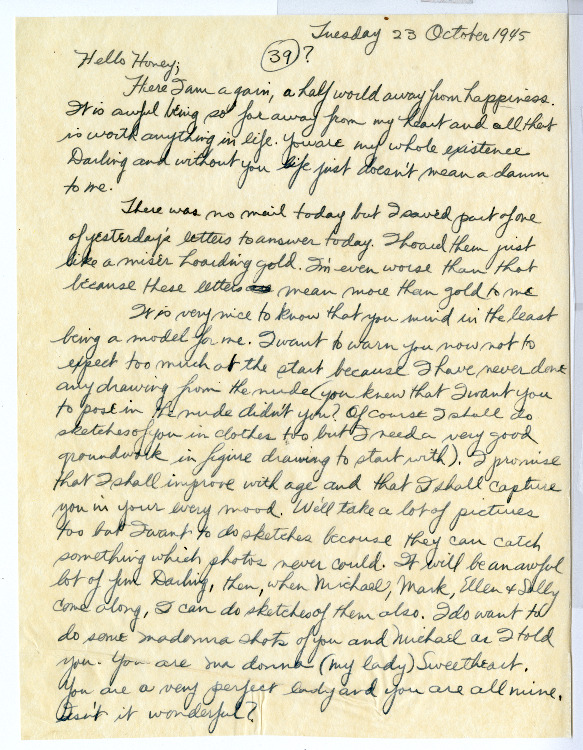 Tuesday 23 October 1945
39?
Hello Honey;
Here I am again, a half world away from happiness.
It is awful being so far away from my heart and all that
is worth anything in life. You are my whole existence
Darling and without you life just doesn't mean a damn
to me.
There was no mail today but I saved part of one
of yesterday's letters to answer today. I hoard them just
like a miser hoarding gold. I'm even worse than that
because these letters mean more than gold to me
It is very nice to know that you mind in the least
being a model for me. I want to warn you now not to
expect too much at the start because I have never done
any drawing from the nude (you knew that I want you
to pose in the nude didn't you? Of course I shall do
sketches of you in clothes too but I need a very good
groundwork in figure drawing to start with). I promise
that I shall improve with age and that I shall capture
you in your every mood. We'll take a lot of pictures
too but I want to do sketches because they can catch
something which photos never could. It will be an awful
lot of fun Darling, then, when Michael, Mark, Ellen & Sally
come along, I can do sketches of them also. I do want to
do some madonna shots of you and Michael as I told
you. You are ma donna (my lady) Sweetheart.
You are a very perfect lady and you are all mine.
Isn't it wonderful?